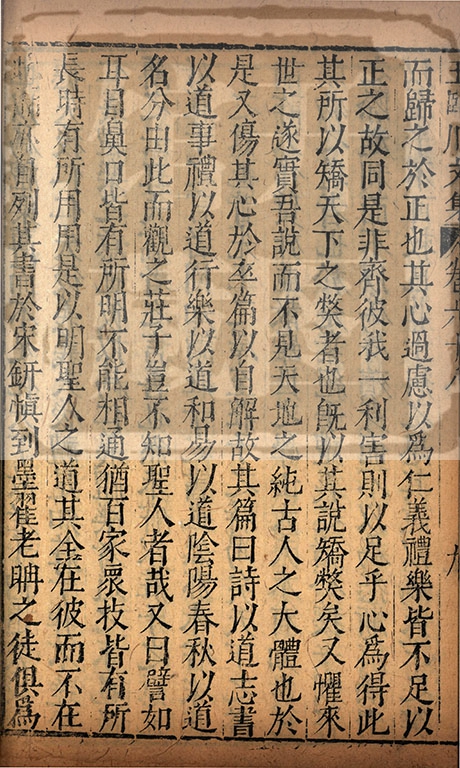 王臨川文集卷六十八 九
而歸之於正也其心過慮以爲仁義禮樂皆不足以
正之故同是非齊彼我一利害則以足乎心爲得此
其所以矯天下之獘者也旣以其說矯獘矣又懼來
世之遂實吾說而不見天地之純古人之大體也於
是又傷其心於卒篇以自解故其篇曰詩以道志書
以道事禮以道行樂以道和易以道陰陽春秋以道
名分由此而觀之莊子豈不知聖人者哉又曰譬如
耳目鼻口皆有所明不能相通猶百家衆技皆有所
長時有所用用是以明聖人之道其全在彼而不在
此而亦自列其書於宋鈃愼到墨翟老聃之徒俱爲